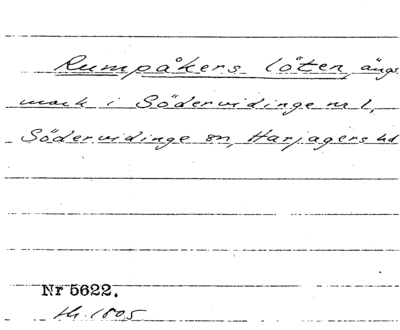 Rumpåkers löten, ängs
mark i Södervidinge nr 1,
Södervidinge sn, Harjagers hd
Nr 5622.
LH. 1805